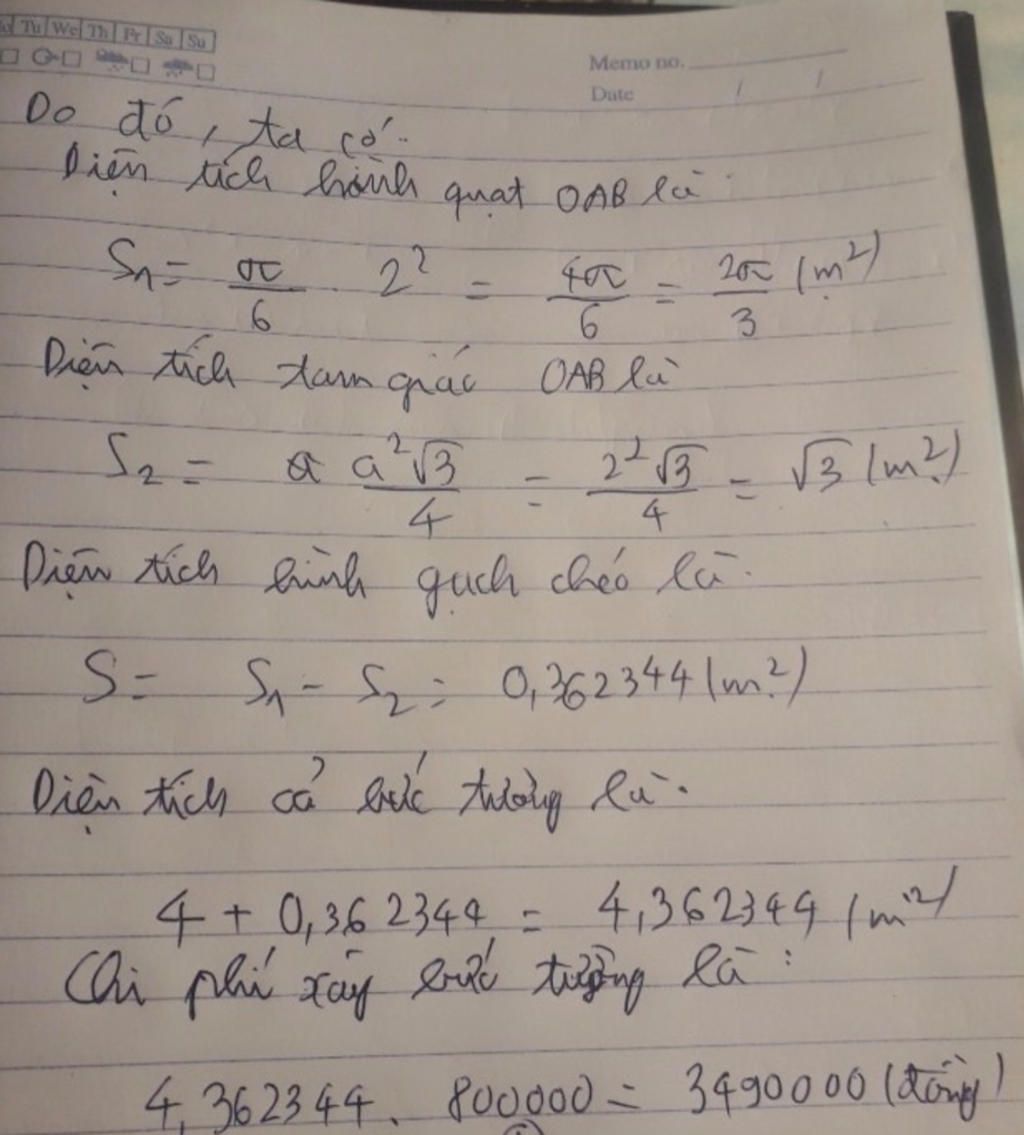 Tu We Th Fr Sa Su
Memo no.
Date / /
Do đó, ta có:
Diện tích hình quạt OAB là:
S₁ = π/6 . 2² = 4π/6 = 2π/3 (m²)
Diện tích tam giác OAB là
S₂ = a²√3/4 = 2²√3/4 = √3 (m²)
Diện tích hình gạch chéo là:
S = S₁ - S₂ = 0,362344 (m²)
Diện tích cả bức tường là:
4 + 0,362344 = 4,362344 (m²)
Chi phí xây bức tường là:
4,362344. 800000 = 3490000 (đồng)